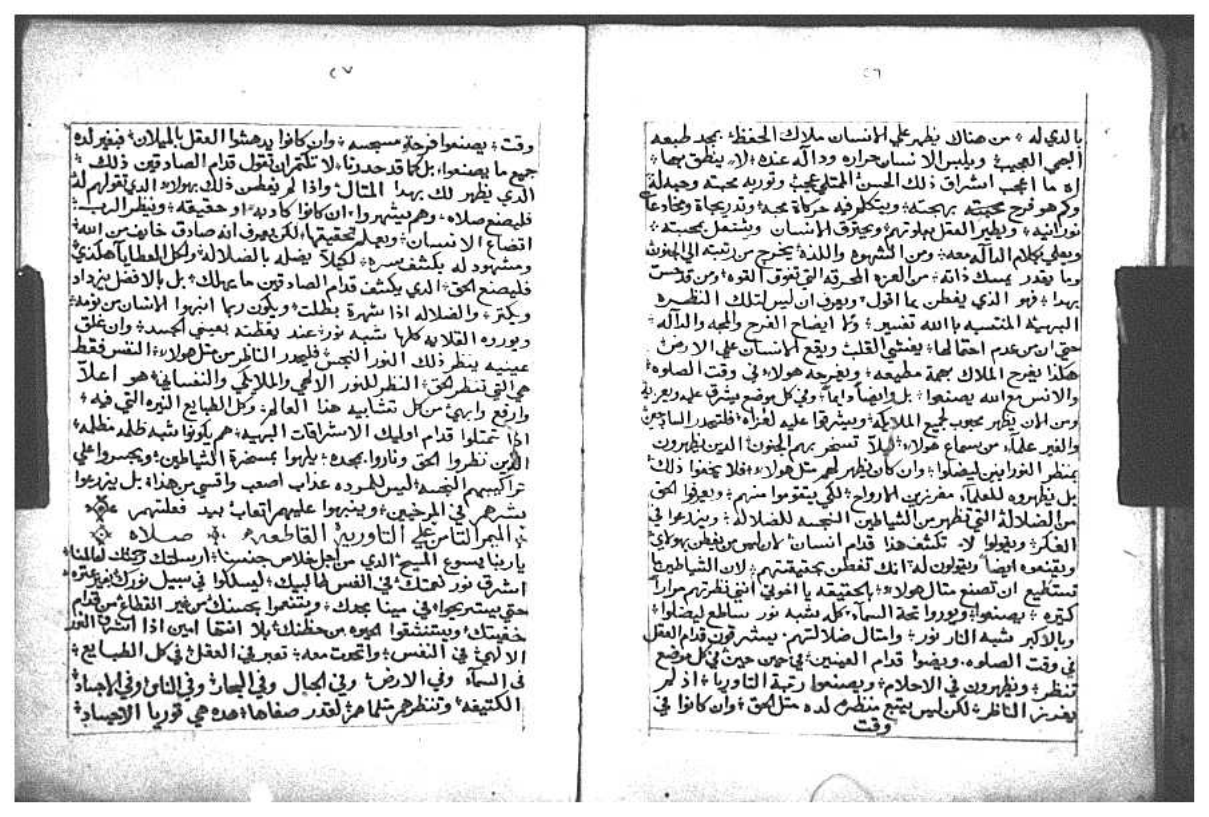 ٤٦
بالدي له ۞ من هناك يظهر علي الانسان ملاك الحفظ ۞ بمجد طبيعه
البهي العجيب ۞ ويلبس الانسان حراره وداله عنده ۞ لا ينطق بها ۞
اه ما اعجب اشراق ذلك الحسن الممتلي عجب ۞ وتوريه محبته وجيدلة
وكم هو فرح محبته بهجته ۞ ويتكلم فيه حركاة محبه ۞ وتدريجاة ومخادعا
نورانيه ۞ ويطير العقل بحلوتهم ۞ ويحترق الانسان ويشتعل بمحبته ۞
ويعطي بكلام الداله معه ۞ ومن الشهوه واللدة يخرج من رتبته الي الجنوت
وما يقدر يمسك ذاته ۞ من العزه المحرقه التي تفوق القوه ۞ ومن
بهدا ۞ فهو الذي يفطن بما اقول ۞ ويعرف ان ليس لتلك النظره
البهية المنتسبه باالله تفسير ۞ ولا ايضاح الفرح والمجه والداله ۞
حتي ان من عدم احتمالها ۞ يغشي القلب ويقع الانسان علي الارض
هكدا يفرح الملاك بهمة مطيعه ۞ ويفرحه هولاء في وقت الصلوه ۞
والانس مع الله يصنعوا ۞ بل وايضا دايما ۞ وفي كل موضع يشرق عليه ويعزيه
ومن الان يظهر محبوب لجميع الملايكه ۞ ويشرقوا عليه لعزاه ۞ فليتحدر السادجين
والغير علماء من سماع هولاء ۞ ليلا تسخر بهم الجنون الدين يظهرون
بمنظر النورانيين ليضلوا ۞ وان كان يظهر لهم مثل هولاء ۞ فلا يخفوا ذلك ۞
بل يظهروه للعلماء مفرزين الارواح ۞ لكي يتقوموا منهم ۞ ويعرفوا الحق
من الضلالة التي تظهر من الشياطين النجسه للضلالة ۞ ويزدعوا في
الفكر ۞ ويقولوا لا تكشف هذا قدام انسان ۞ لان ليس من يفطن بهولاي
ويقنعوه ايضا ويقولون له ۞ انك تفطن بحقيقتهم ۞ لان الشياطين ما
تستطيع ان تصنع متال هولاء ۞ بالحقيقه يا اخوتي انني نظرتهم مرارا
كتيره ۞ يصنعوا ويوروا تحة السماء كله شبه نور ساطع ليضلوا ۞
وبالاكتر شبه النار نور ۞ وامتال ضلالتهم يشرقون قدام العقل
في وقت الصلوه ويضوا قدام العينين ۞ في حين حيث في كل موضع
تنظر ۞ ويظهرون في الاحلام ۞ ويصنعوا رتبة التاوريا ۞ اذ لم
يفرز الناظر ۞ لكن ليس يتبع منظره لده متل الحق ۞ وان كانوا في
وقت
٤٧
وقت ۞ يصنعوا فرحة مسبحسه ۞ وان كانوا يدهشوا العقل بالميلان ۞ فبغير لده
جميع ما يصنعوا ۞ بل كما قد حددنا ۞ لا تلتمران تقول قدام الصادقين ذلك ۞
الدي يظهر لك بهدا المتال ۞ واذا لم يفطن ذلك بهولاء الدي تقولهم له
فليصنع صلاه ۞ وهم يشهروا ۞ ان كانوا كادبة ۞ او حقيقه ۞ وينظر الرب ۞
اتضاع الانسان ۞ ويعلم تحقيقتها ۞ لكن يعرف انه صادق خايف من الله ۞
ومشهود له يكشف سره ۞ لكيلا يضله بالضلاله ۞ ولكل العطايا هكدي
فليصنع الحق ۞ الدي يكشف قدام الصادقين ما يهلك ۞ بل بالافضل يزداد
ويكتر ۞ والضلاله اذا شهرة بطلت ۞ ويكون ربما انبهوا الانسان من نومه ۞
ويوروه القلايه كلها شبه نور ۞ عند يقظته بعيني الجسد ۞ وان غلق
عينيه ينظر ذلك النور النجس ۞ فليحدر الناظر من مثل هولاء ۞ النفس فقط
هي التي تنظر الحق ۞ النظر للنور الالهي والملايكي والنفساني ۞ هو اعلا
وارفع وابهي من كل تشابيه هذا العالم ۞ وكل الطبايع النيره التي فيه ۞
اذا تمتلوا قدام اوليك الاشراقات البهيه ۞ هم يكونوا شبه ظلمه مظلمه ۞
الدين نظروا الحق وناروا بمجده ۞ يلهوا بمسخرة الشياطين ۞ ويجسروا علي
تراكيبهم النجسه ۞ ليس للمرده عذاب اصعب واقسي من هذا ۞ بل يزرعوا
شرهم في المرخيين ۞ وينبهوا عليهم اتعاب بيد فعلتهم
الميمر التامن علي التاورية القاطعه ۞ صلاه
ياربنا يسوع المسيح ۞ الدي من اجل خلاص جنسنا ۞ ارسلتك رحمتك لعالمنا
اشرق نور نعمتك في انفس طالبيك ۞ ليسلكوا في سبيل نورك بغير عتره
حتي يستريحوا ۞ في مينا مجدك ۞ ويتنعموا بحسنك من غير انقطاع من قدام
خفيتك ۞ ويستنشقوا الحيوه من حظنك ۞ بلا انتها امين اذا اشرق النور
الالهي في النفس ۞ واتحدت معه ۞ تعبر في العقل ۞ في كل الطبايع ۞
في السماء وفي الارض ۞ وفي الجبال وفي البحار ۞ وفي الناس وفي الاجساد
الكتيفه ۞ وتنظرهم متلما هم لقدر صفاها ۞ هده هي توريا الاجساد ۞